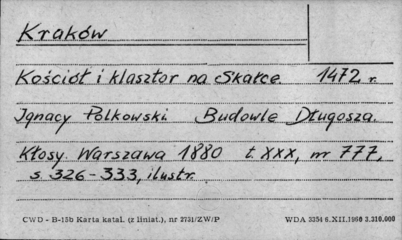 Kraków
Kościół i klasztor na Skałce. 1472 r.
Ignacy Polkowski Budowle Długosza.
Kłosy. Warszawa 1880 t. XXX, nr 777,
s. 326-333, ilustr.
CWD - B-15b Karta katal. (z liniat.), nr 2731/ZW/P WDA 3354 6.XII.1960 2.310.000